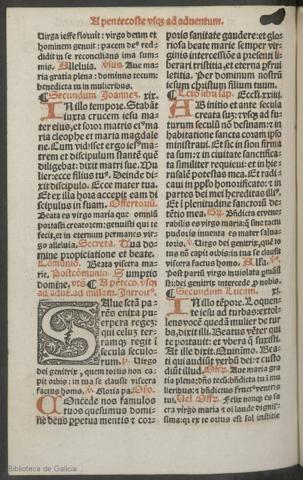 A pentecoste vsq̃ ad aduentum.
virga iesse floruit : virgo deum et
hominem genuit : pacem deꝰ red-
didit in se reconcilians ima sum-
mis. Alleluia. vṡus. Aue ma
ria gratia plena : dominus tecum:
benedicta tu in mulieribus.
Secundum Joannez. xix.
IN illo tempore. Stabāt
iuxta crucem iesu ma-
ter eius, et soror matris eiꝰ ma
ria cleophe et maria magdale
ne. Cum vidisset ergo iesꝰ ma-
trem et discipulum stantē quē
diligebat: dixit matri sue. Mu
lier ecce filius tuꝰ. Deinde di-
xit discipulo. Ecce mater tua.
Et ex illa hora accepit eam di
scipulus in suam. Offertoriū.
Beata es virgo maria que omniū
portasti creatorem: genuisti qui te
fecit, et in eternum permanes vir-
go alleluia. Secreta. Tua do-
mine propiciatione et beate.
Comunio. Beata viscera ma-
rie. Postcōmunio. Sumptis
domine, vts̄
A pēteco. vsqz
ad aduē. ad missam. Introitꝰ.
SAlue sctā pa-
rēs enixa pu-
erpera regez:
qui celuz ter-
ramqz regit ī
secula seculo-
rum. Virgo
dei genitrix, quem totus non ca-
pit orbis : in tua se clausit viscera
factus homo. Gloria pa. Oro.
COncede nos famulos
tuos quesumus domi-
ne deus ppetua mentis et cor-
poris sanitate gaudere: et glo-
riosa beate marie semper vir-
ginis intercessiōe a presenti li-
berari tristitia, et eterna pfrui
letitia. Per dominum nostrū
iesum christum filium tuum.
Lectio libri sap. Eccli. xxiiii.
AB initio et ante secula
creata sum: vsqz ad fu-
turum seculū nō desinam : et in
habitatione sancta coram ipso
ministraui. Et sic in sion firma
ta sum : et in ciuitate sanctifica-
ta similiter requieui: et in hie-
rusalē potestas mea. Et radi-
caui in pplo honorificato: et in
partes dei mei hereditas illiꝰ.
Et ī plenitudine sanctorū de-
tētio mea. Gr̄. Bn̄dicta et vene-
rabilis es virgo maria: q̄ sine tactu
pudoris inuenta es mater salua-
toris. Virgo dei genitrix, quē to
tus nō capit orbis: in tua se clausit
viscera factus homo. Alla.
Post partū virgo inuiolata pmāsi
sti: dei genitrix intercede p nobis.
Secundum Lucam. xi.
IN illo tēpore. Loquen-
te iesu ad turbas: extol-
lens vocē quedā mulier de tur
ba, dixit illi. Beatus vēter qui
te portauit: et vbera q̄ suxisti.
At ille dixit. Quinimo. Bea-
ti qui audiūt verbū dei: et custo
diūt illud. Offer. Aue maria gra
tia plena: dn̄s tecū: bn̄dicta tu ī mu
lieribus: et bn̄dictus fructꝰ ventris
tui. Vel Offer. Felix nanqz es sa
cra virgo maria et oī laude dignis-
sima: qz ex te ortus est sol iustitie
Biblioteca de Galicia